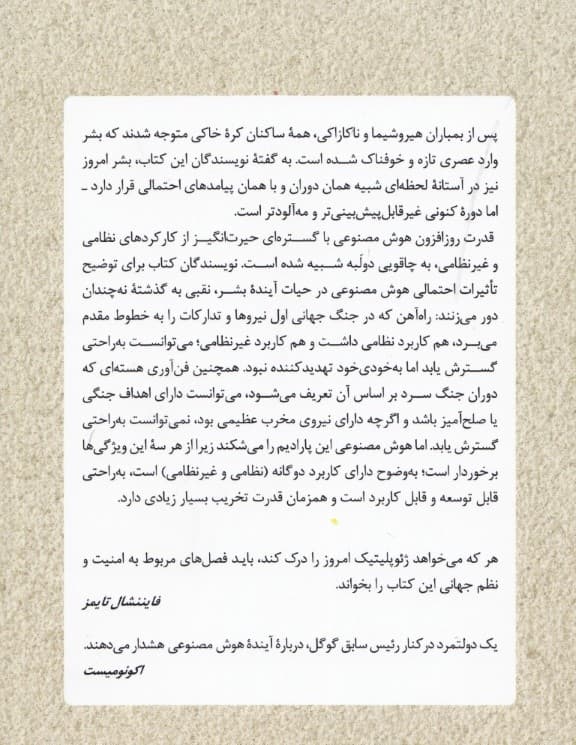 پس از بمباران هیروشیما و ناکازاکی، همهٔ ساکنان کرهٔ خاکی متوجه شدند که بشر
وارد عصری تازه و خوفناک شده است. به گفتهٔ نویسندگان این کتاب، بشر امروز
نیز در آستانهٔ لحظه‌ای شبیه همان دوران و با همان پیامدهای احتمالی قرار دارد ـ
اما دورهٔ کنونی غیرقابل‌پیش‌بینی‌تر و مه‌آلودتر است.
قدرت روزافزون هوش مصنوعی با گستره‌ای حیرت‌انگیز از کارکردهای نظامی
و غیرنظامی، به چاقویی دولَبه شبیه شده است. نویسندگان کتاب برای توضیح
تأثیرات احتمالی هوش مصنوعی در حیات آیندهٔ بشر، نقبی به گذشتهٔ نه‌چندان
دور می‌زنند: راه‌آهن که در جنگ جهانی اول نیروها و تدارکات را به خطوط مقدم
می‌برد، هم کاربرد نظامی داشت و هم کاربرد غیرنظامی؛ می‌توانست به‌راحتی
گسترش یابد اما به‌خودی‌خود تهدیدکننده نبود. همچنین فن‌آوری هسته‌ای که
دوران جنگ سرد بر اساس آن تعریف می‌شود، می‌توانست دارای اهداف جنگی
یا صلح‌آمیز باشد و اگرچه دارای نیروی مخرب عظیمی بود، نمی‌توانست به‌راحتی
گسترش یابد. اما هوش مصنوعی این پارادیم را می‌شکند زیرا از هر سهٔ این ویژگی‌ها
برخوردار است؛ به‌وضوح دارای کاربرد دوگانه (نظامی و غیرنظامی) است، به‌راحتی
قابل توسعه و قابل کاربرد است و همزمان قدرت تخریب بسیار زیادی دارد.
هر که می‌خواهد ژئوپلیتیک امروز را درک کند، باید فصل‌های مربوط به امنیت و
نظم جهانی این کتاب را بخواند.
فایننشال تایمز
یک دولتمرد درکنار رئیس سابق گوگل، دربارهٔ آیندهٔ هوش مصنوعی هشدار می‌دهند.
اکونومیست